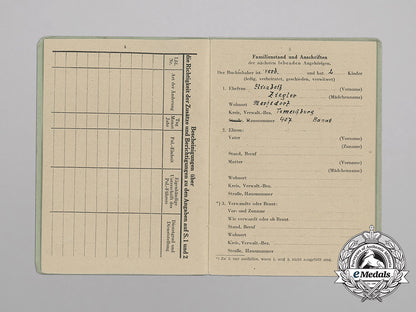 4
Bescheinigungen über
die Richtigkeit der Zusätze und Berichtigungen zu den Angaben auf S. 1 und 2
Lfd. Nr.
Art der Änderung
Tag Monat Jahr
Pol.-Einheit
Eigenhändige Unterschrift des Pol.-Führers
Dienstgrad und Dienststellung
5
Familienstand und Anschriften
der nächsten lebenden Angehörigen.
Der Buchinhaber ist verh. und hat 2 Kinder
(ledig, verheiratet, geschieden, verwitwet)
1. Ehefrau: (Vorname)
Ziegler (Mädchenname)
Wohnort
Kreis, Verwalt.-Bez.
Hausnummer 427 Banat
2. Eltern:
Vater (Vorname)
(Zuname)
Stand, Beruf
Mutter (Vorname)
(Mädchenname)
Wohnort
Kreis, Verwalt.-Bez.
Straße, Hausnummer
*) 3. Verwandte oder Braut:
Vor- und Zuname
Wie verwandt oder ob Braut
Stand, Beruf
Wohnort
Kreis, Verwalt.-Bez.
Straße, Hausnummer
*) Zu 3. nur ausfüllen, wenn 1. und 2. nicht ausgefüllt sind.
eMedals